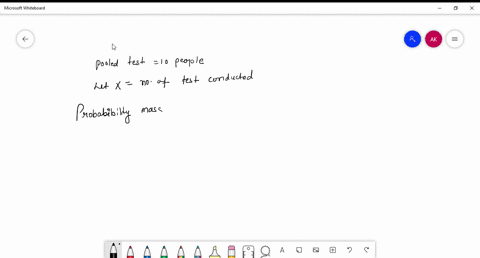 Microsoft Whiteboard
AK
pooled test = 10 people
Let X = no. of test conducted
Probability mass